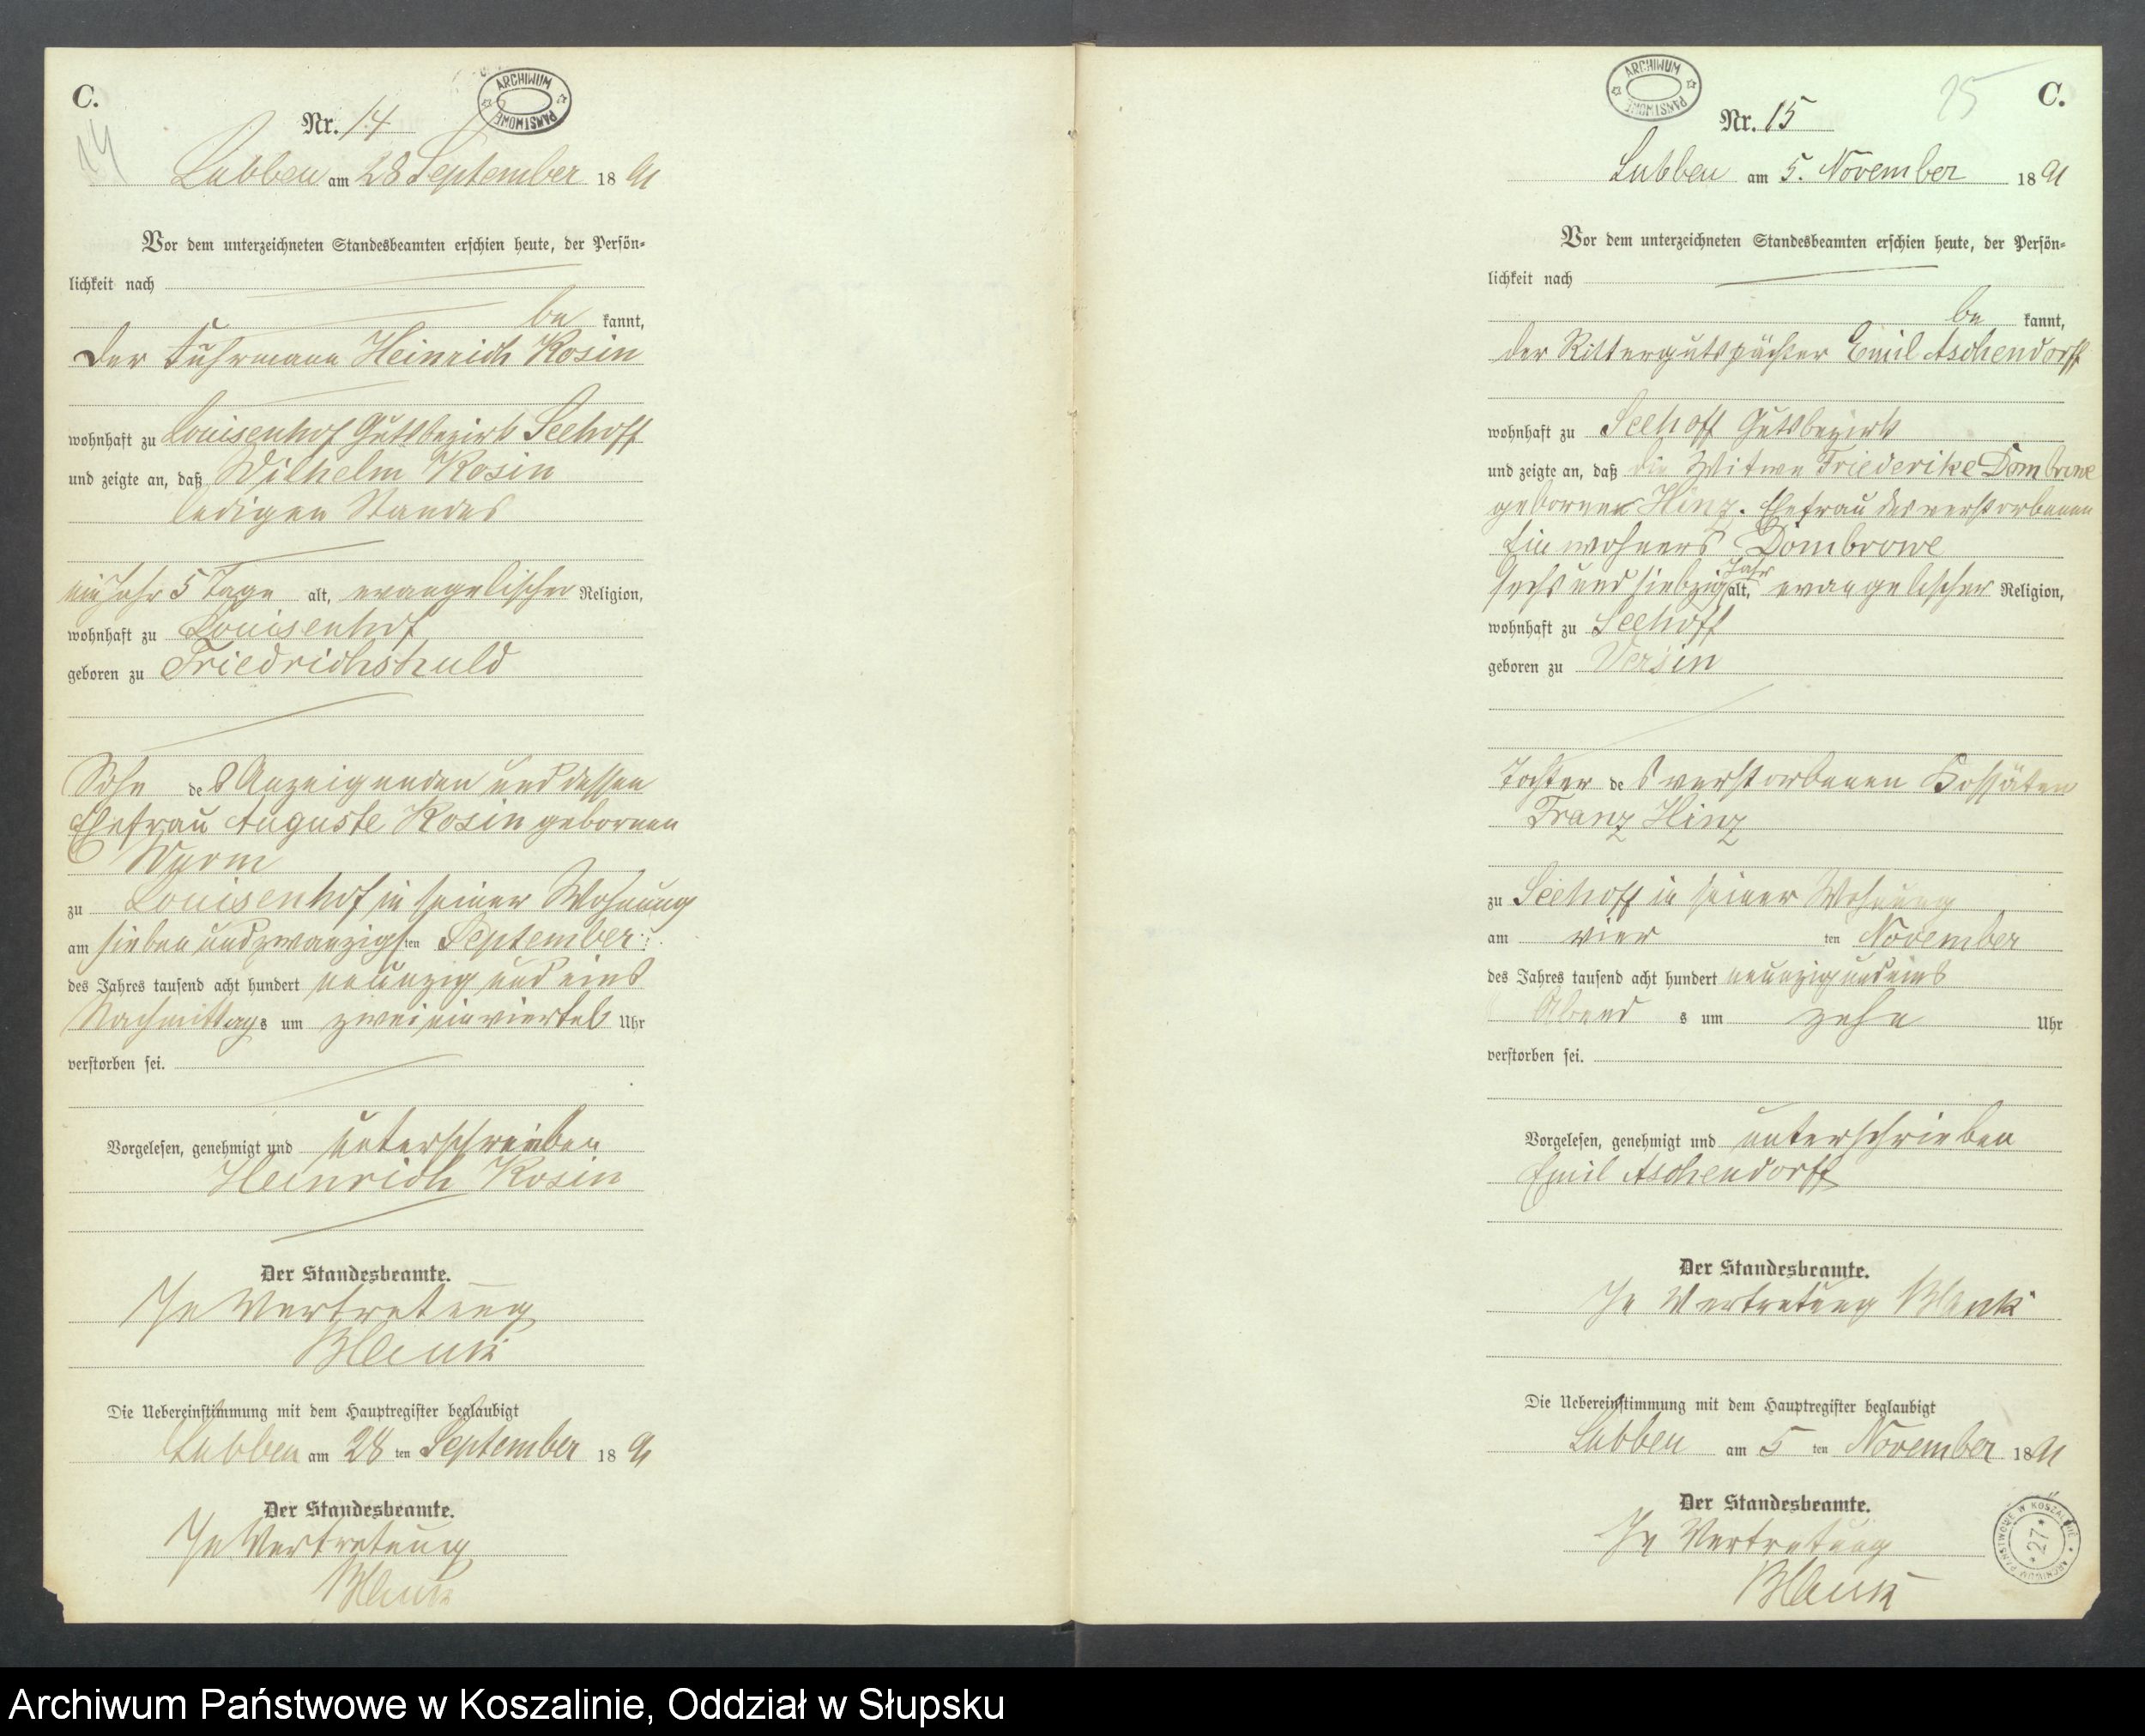 C.
14
ARCHIWUM PAŃSTWOWE
Nr. 14
Lubben am 28 September 1891
Vor dem unterzeichneten Standesbeamten erschien heute, der Persön-
lichkeit nach
be kannt,
der Fuhrmann Heinrich Kosin
wohnhaft zu Louisenhof Gutsbezirk Seehoff
und zeigte an, daß Wilhelm Kosin
ledigen Standes
ein Jahr 5 Tage alt, evangelischer Religion,
wohnhaft zu Louisenhof
geboren zu Friedrichshuld
Sohn des Anzeigenden und dessen
Ehefrau Auguste Kosin gebornen
zu Louisenhof in seiner Wohnung
am sieben und zwanzigsten September
des Jahres tausend acht hundert neunzig und eins
Nachmittags um zwei ein viertel Uhr
verstorben sei.
Vorgelesen, genehmigt und unterschrieben
Heinrich Kosin
Der Standesbeamte.
In Vertretung
Blank
Die Uebereinstimmung mit dem Hauptregister beglaubigt
Lubben am 28 ten September 1891
Der Standesbeamte.
In Vertretung
Blank
ARCHIWUM PAŃSTWOWE
C.
Nr. 15
Lubben am 5. November 1891
Vor dem unterzeichneten Standesbeamten erschien heute, der Persön-
lichkeit nach
be kannt,
der Rittergutspächter Emil Aschendorff
wohnhaft zu Seehoff Gutsbezirk
und zeigte an, daß die Witwe Friederike Dombrowe
geborne Hinz. Ehefrau des verstorbenen
Einwohners Dombrowe
sechs und siebzig Jahr alt, evangelischer Religion,
wohnhaft zu Seehoff
geboren zu Versin
Tochter des verstorbenen Kossäten
Franz Hinz
zu Seehoff in seiner Wohnung
am vier ten November
des Jahres tausend acht hundert neunzig und eins
Abend s um zehn Uhr
verstorben sei.
Vorgelesen, genehmigt und unterschrieben
Emil Aschendorff
Der Standesbeamte.
In Vertretung Blank
Die Uebereinstimmung mit dem Hauptregister beglaubigt
Lubben am 5 ten November 1891
Der Standesbeamte.
In Vertretung
Blank
ARCHIWUM PAŃSTWOWE W KOSZALINIE
*27*
Archiwum Państwowe w Koszalinie, Oddział w Słupsku